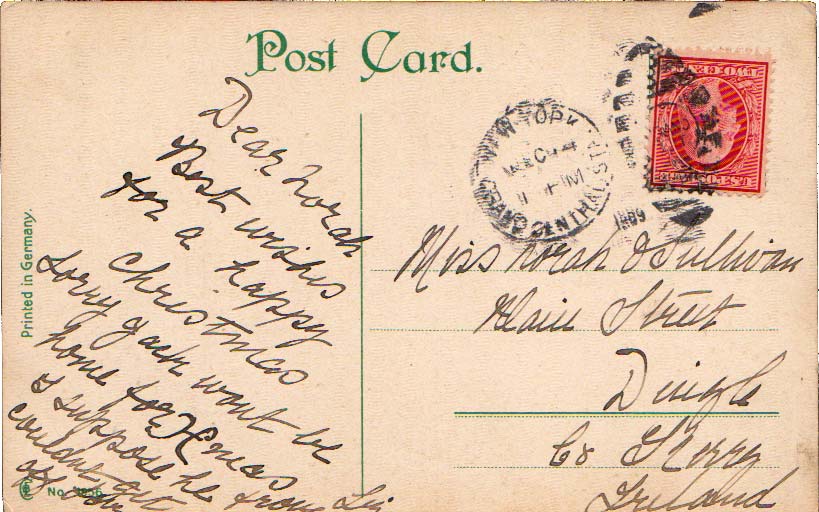 Post Card.
NEW YORK
DEC 4
GRAND CENTRAL STA
1909
Printed in Germany.
Dear Norah
Best wishes
for a happy
Christmas
Sorry Jack wont be
home for Xmas
I suppose he
couldnt get
off
from
Miss Norah O Sullivan
Main Street
Dingle
Co Kerry
Ireland
No.